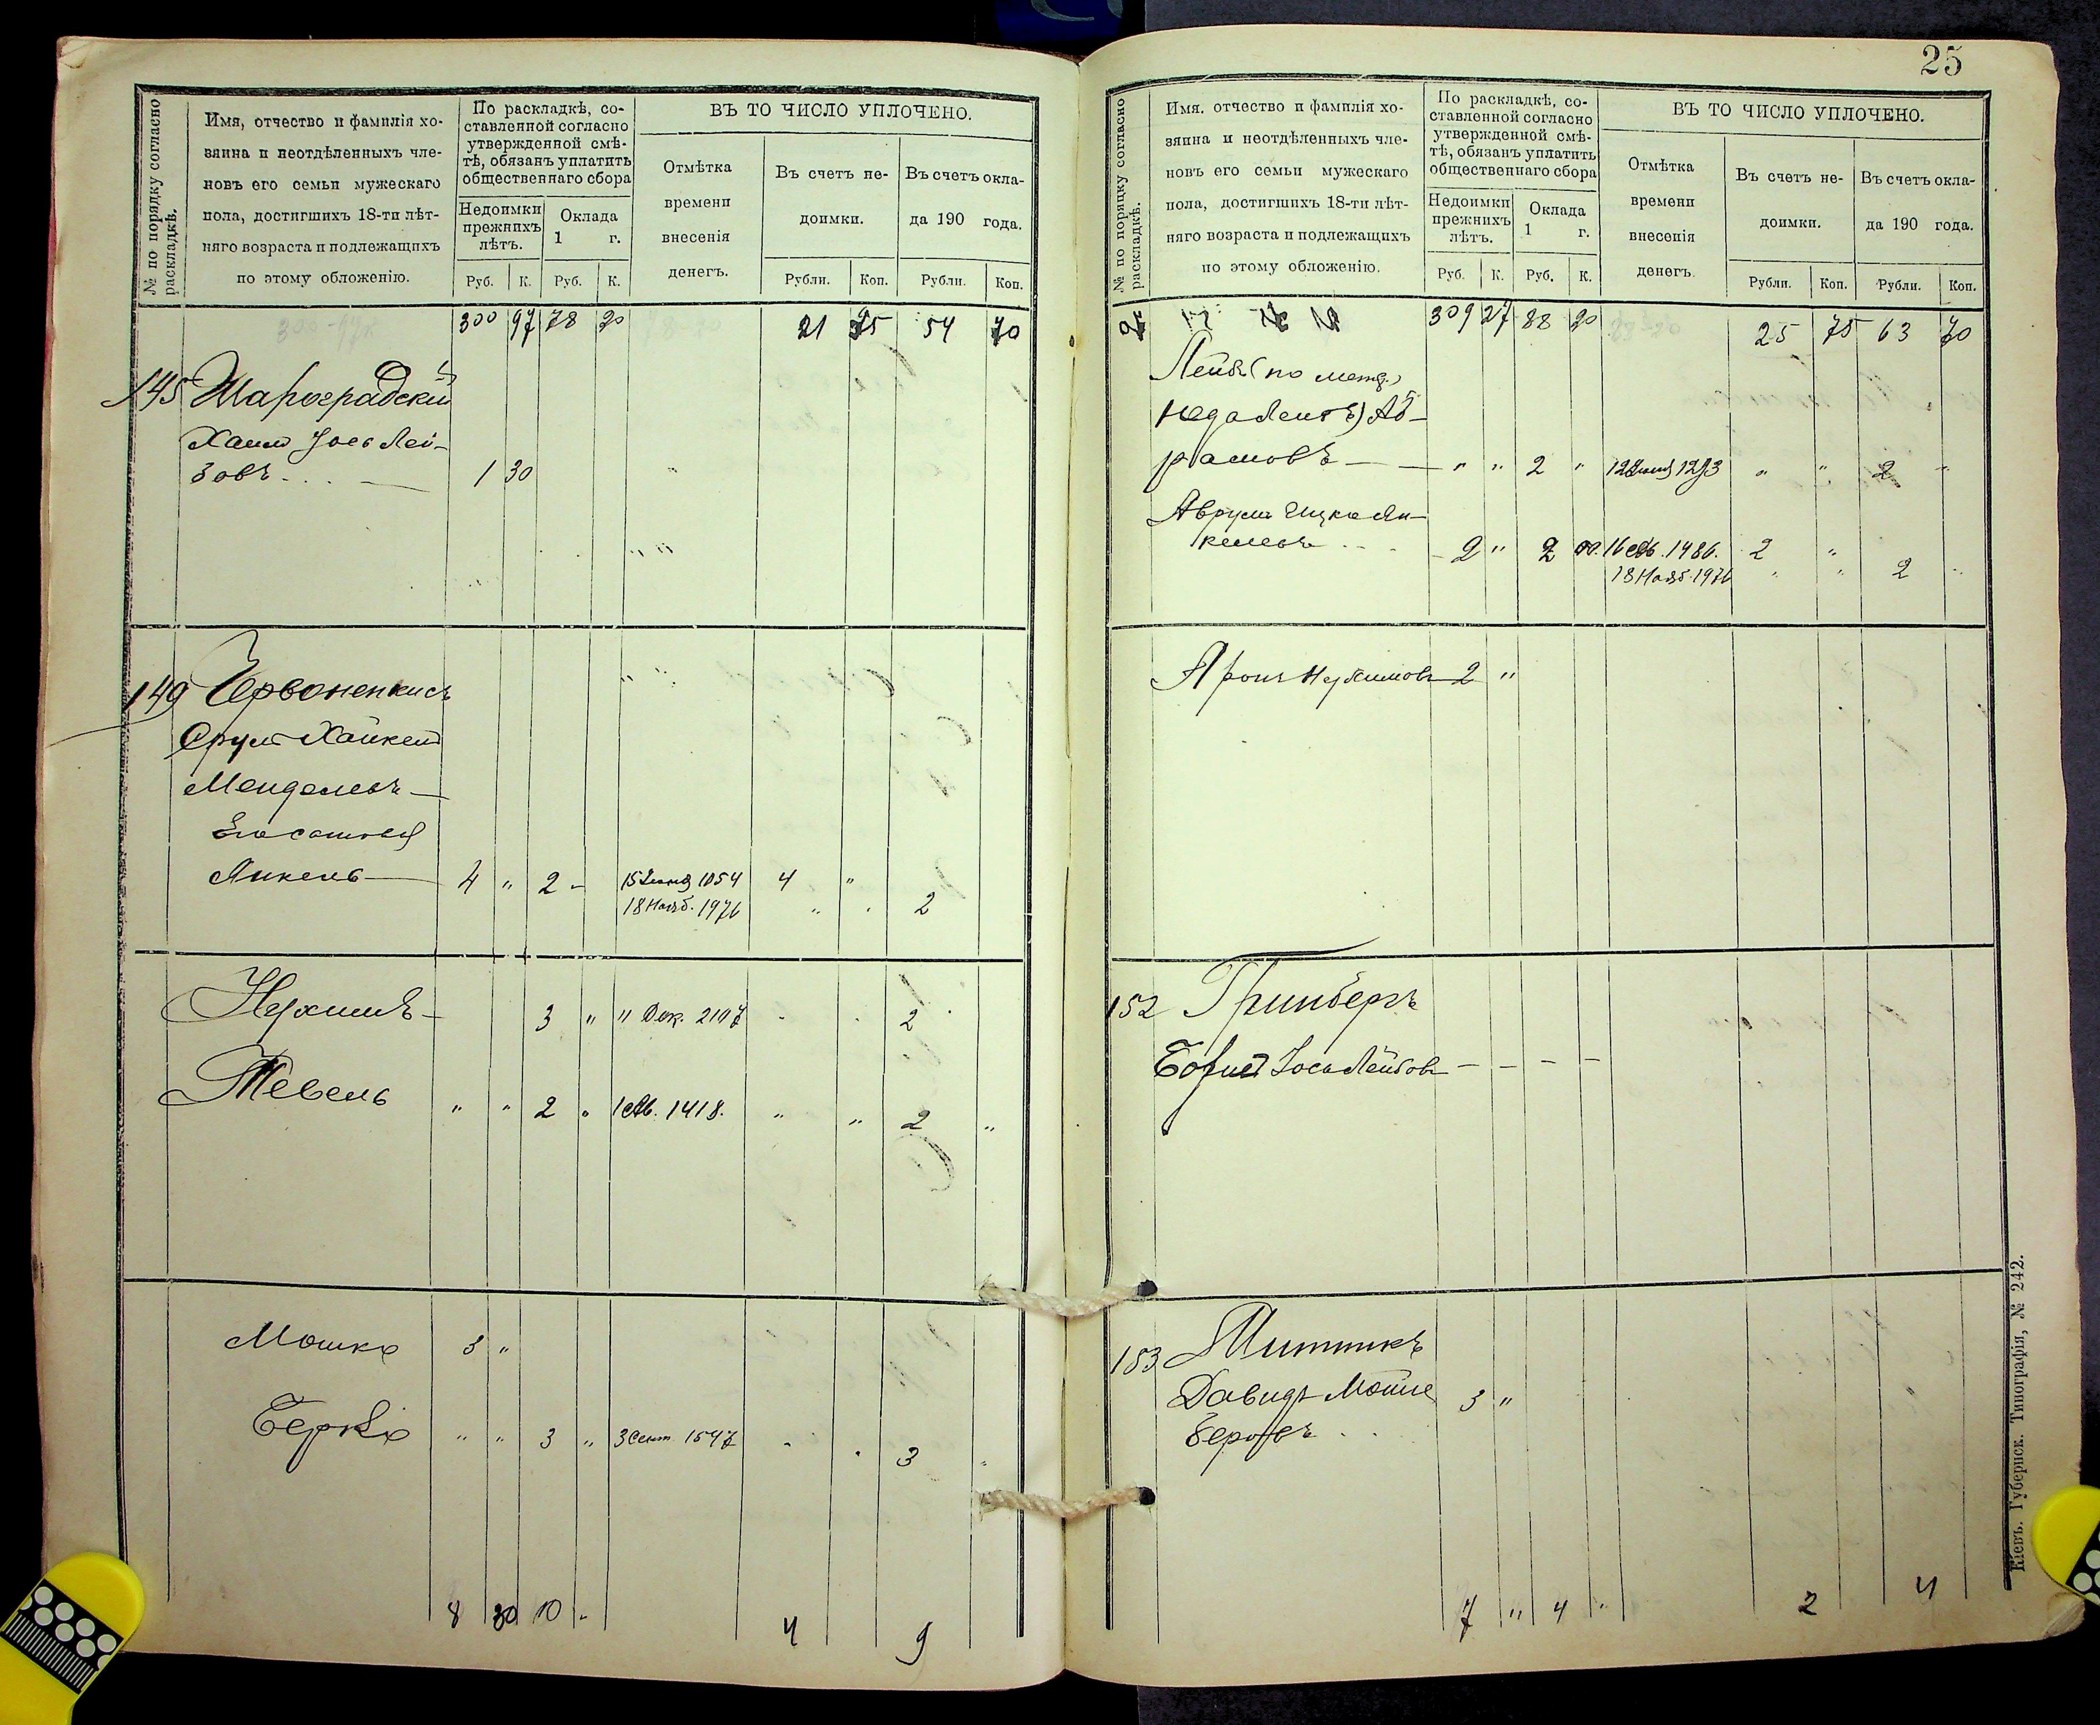 № по порядку согласно
раскладкѣ.
Имя, отчество и фамилія хо-
зяина и неотдѣленныхъ чле-
новъ его семьи мужескаго
пола, достигшихъ 18-ти лѣт-
няго возраста и подлежащихъ
по этому обложенію.
По раскладкѣ, со-
ставленной согласно
утвержденной смѣ-
тѣ, обязанъ уплатить
общественнаго сбора
Недоимки
прежнихъ
лѣтъ.
Оклада
1 г.
Руб. К. Руб. К.
ВЪ ТО ЧИСЛО УПЛОЧЕНО.
Отмѣтка
времени
внесенія
денегъ.
Въ счетъ не-
доимки.
Въ счетъ окла-
да 190 года.
Рубли. Коп. Рубли. Коп.
300 97 78 20 21 75 54 70
145 Шароградскій
Хаим Іось Лей-
зовъ - 1 30
149 Червоненкисъ
Срулъ Хаикель
Менделевъ
Его сыновья
Янкель 4 " 2 - 15 1054 4 "
18 Нояб. 1976 " 2
Нухимъ 3 " " Дек. 2107 2
Тевель " " 2 " 1 Ав. 1418. " " 2 "
Мошко 3 "
Берко " " 3 " 3 Сент 1547 3 "
8 30 10 - 4 9
25
№ по порядку согласно
раскладкѣ.
Имя, отчество и фамилія хо-
зяина и неотдѣленныхъ чле-
новъ его семьи мужескаго
пола, достигшихъ 18-ти лѣт-
няго возраста и подлежащихъ
по этому обложенію.
По раскладкѣ, со-
ставленной согласно
утвержденной смѣ-
тѣ, обязанъ уплатить
общественнаго сбора
Недоимки
прежнихъ
лѣтъ.
Оклада
1 г.
Руб. К. Руб. К.
ВЪ ТО ЧИСЛО УПЛОЧЕНО.
Отмѣтка
времени
внесенія
денегъ.
Въ счетъ не-
доимки.
Въ счетъ окла-
да 190 года.
Рубли. Коп. Рубли. Коп.
309 27 88 20 25 75 63 70
Лейб (по метр.)
Аб-
рамовъ - " " 2 " 12 1293 " " 2 "
Аврумъ Ицко Ян-
келевъ - 2 " 2 16 Авг. 1486. 2 "
18 Нояб. 1976 " " 2
Аронъ Нухимовъ 2 "
152 Гринбергъ
Борис Іось Лейбовъ - - - -
153 Шитникъ
Давидъ Мошко 3 "
Беровъ
7 " 4 " 2 4
Кіевъ. Губернск. Типографія, № 242.